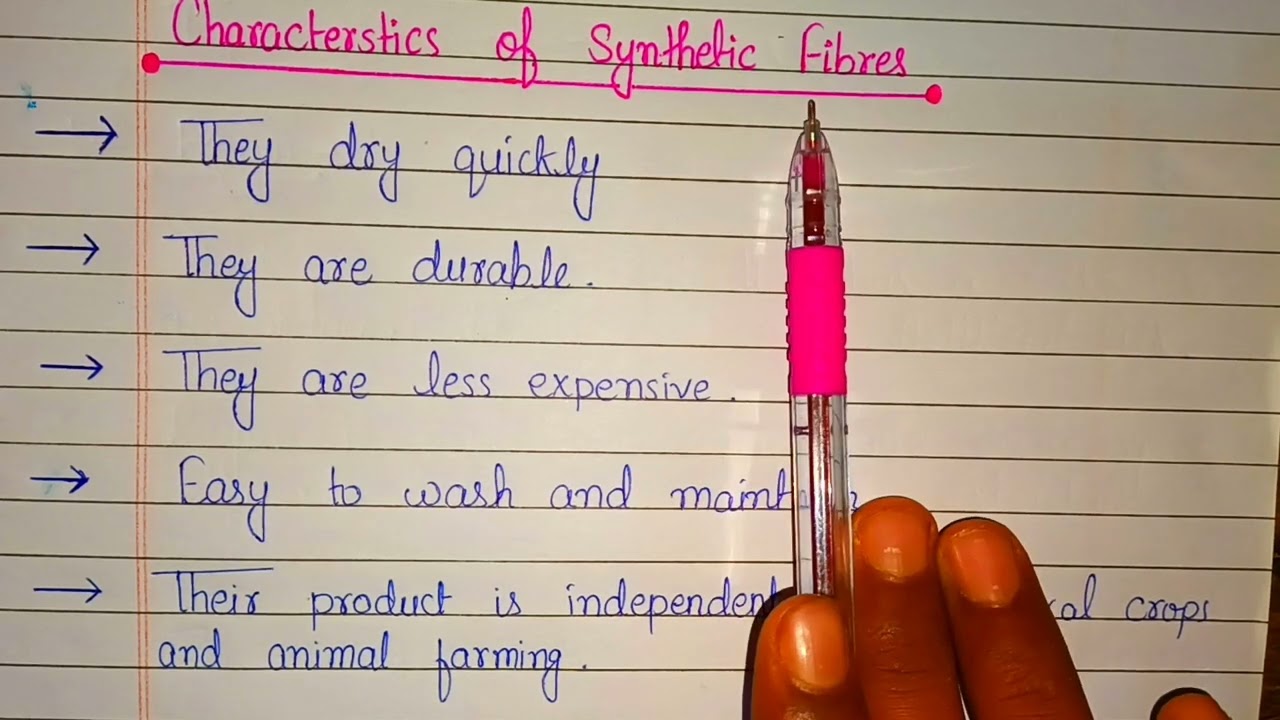 Characterstics of Synthetic Fibres
→ They dry quickly
→ They are durable.
→ They are less expensive.
→ Easy to wash and
→ Their product is independent crops
and animal farming.